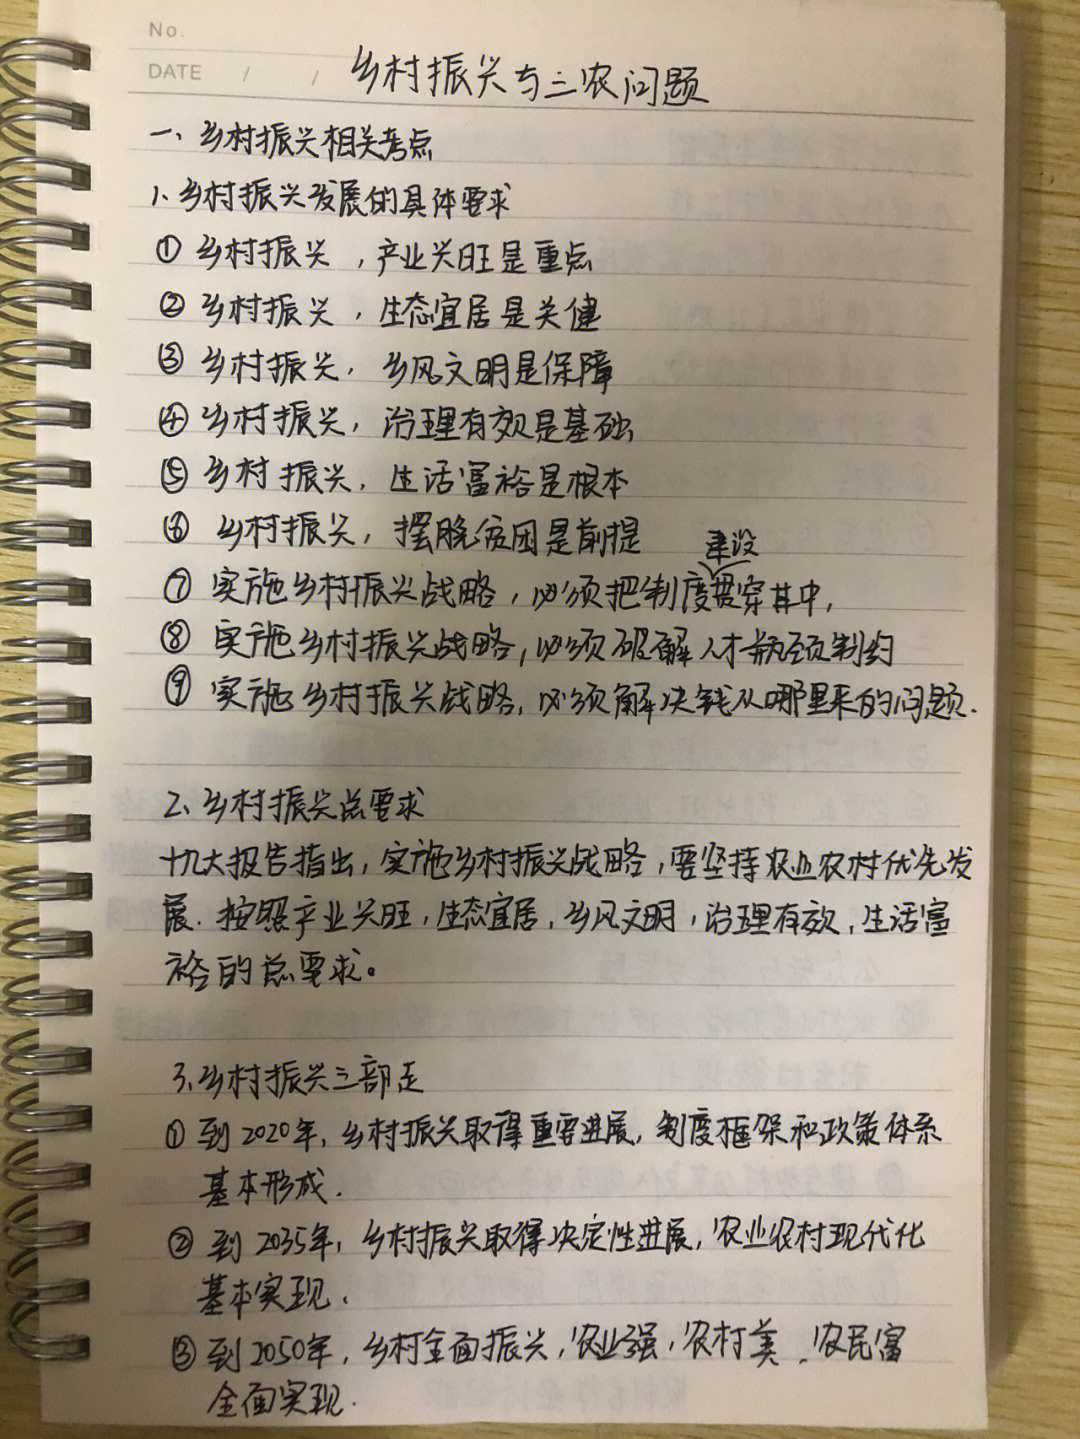 No.
DATE / /
乡村振兴与三农问题
一、乡村振兴相关考点
1、乡村振兴发展的具体要求
① 乡村振兴，产业兴旺是重点
② 乡村振兴，生态宜居是关健
③ 乡村振兴，乡风文明是保障
④ 乡村振兴，治理有效是基础
⑤ 乡村振兴，生活富裕是根本
⑥ 乡村振兴，摆脱贫困是前提
建设
⑦ 实施乡村振兴战略，必须把制度贯穿其中，
⑧ 实施乡村振兴战略，必须破解人才瓶颈制约
⑨ 实施乡村振兴战略，必须解决钱从哪里来的问题.
2、乡村振兴总要求
十九大报告指出，实施乡村振兴战略，要坚持农业农村优先发
展.按照产业兴旺，生态宜居，乡风文明，治理有效，生活富
裕的总要求。
3、乡村振兴三部走
① 到2020年，乡村振兴取得重要进展，制度框架和政策体系
基本形成.
② 到2035年，乡村振兴取得决定性进展，农业农村现代化
基本实现.
③ 到2050年，乡村全面振兴，农业强，农村美，农民富
全面实现.